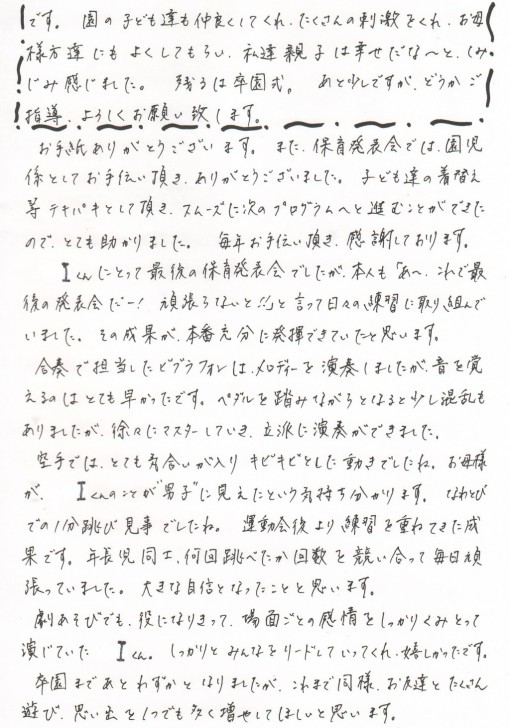 です。 園の子ども達も仲良くしてくれ、たくさんの刺激をくれ、お母
様方達にもよくしてもらい、私達親子は幸せだな〜と、しみ
じみ感じました。 残るは卒園式。 あと少しですが、どうかご
指導、よろしくお願い致します。
お手紙ありがとうございます。また、保育発表会では、園児
係としてお手伝い頂き、ありがとうございました。子ども達の着替え
等テキパキとして頂き、スムーズに次のプログラムへと進むことができた
ので、とても助かりました。 毎年お手伝い頂き、感謝しております。
Iくんにとって最後の保育発表会でしたが、本人も「あ〜、これで最
後の発表会だー! 頑張らないと!!」と言って日々の練習に取り組んで
いました。その成果が、本番充分に発揮できていたと思います。
合奏で担当したビブラフォンは、メロディーを演奏しましたが、音を覚
えるのはとても早かったです。ペダルを踏みながらとなると少し混乱も
ありましたが、徐々にマスターしていき、立派に演奏ができました。
空手では、とても気合いが入りキビキビとした動きでしたね。お母様
が、 Iくんのことが"男子"に見えたという気持ち分かります。なわとび
での1分跳び見事でしたね。 運動会後より練習を重ねてきた成
果です。年長児同士、何回跳べたか回数を競い合って毎日頑
張っていました。大きな自信となったことと思います。
劇あそびでも、役になりきって、場面ごとの感情をしっかりくみとって
演じていた Iくん。しっかりとみんなをリードしていってくれ、嬉しかったです。
卒園まであとわずかとなりましたが、これまで同様、お友達とたくさん
遊び、思い出を1つでも多く増やしてほしいと思います。